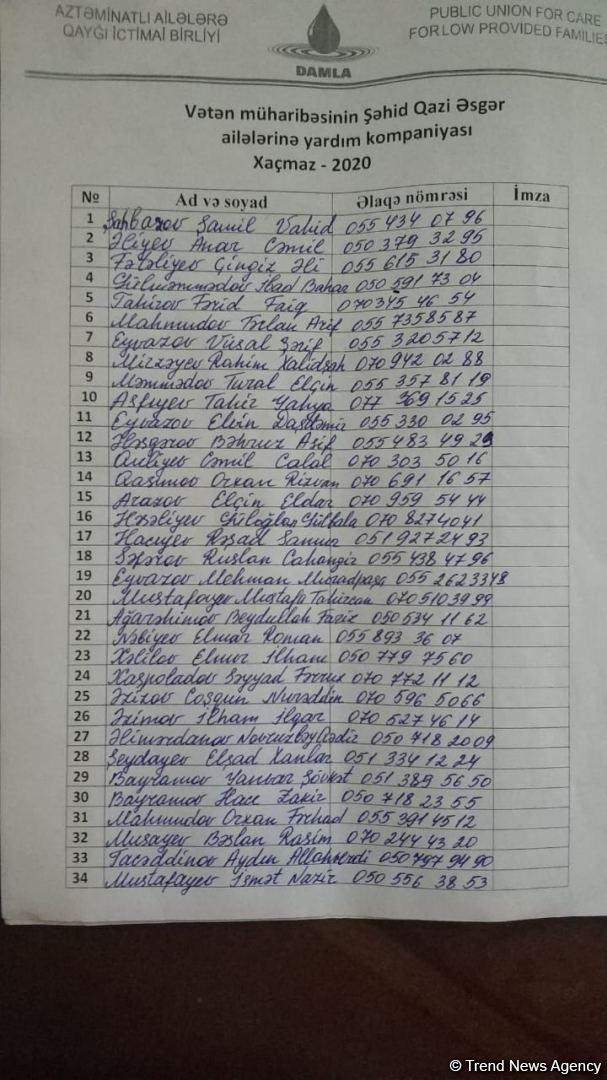 AZTƏMİNATLI AİLƏLƏRƏ
QAYĞI İCTİMAİ BİRLİYİ
PUBLIC UNION FOR CARE
FOR LOW PROVIDED FAMILIES
DAMLA
Vətən müharibəsinin Şəhid Qazi Əsgər
ailələrinə yardım kompaniyası
Xaçmaz - 2020
№ Ad və soyad Əlaqə nömrəsi İmza
1 Şahbazov Şamil Vahid 055 434 07 96
2 Əliyev Anar Cəmil 050 379 32 95
3 Fətəliyev Çingiz Əli 055 615 31 80
4 Gülməmmədov İbad Bahar 050 591 73 04
5 Tahirov Fərid Faiq 070 345 46 54
6 Mahmudov Arif 055 735 85 87
7 Eyvazov Vüsal Şərif 055 320 57 12
8 Mirzəyev Rahim Xalidşah 070 942 02 88
9 Məmmədov Tural Elçin 055 357 81 19
10 Tahir Yahya 077 369 15 25
11 Eyvazov Elvin Daşdəmir 055 330 02 95
12 Əsgərov Bəhruz Asif 055 483 49 29
13 Quliyev Cəmil Calal 070 303 50 16
14 Qasımov Orxan Rizvan 070 691 16 57
15 Arazov Elçin Eldar 070 959 54 44
16 070 827 40 41
17 Hacıyev Rəşad 051 927 24 93
18 Səfərov Ruslan Cahangir 055 438 47 96
19 Eyvazov Mehman Muradpaşa 055 262 33 48
20 Mustafayev Mustafa Tahircan 070 510 39 99
21 Ağarəhimov Beydullah Faziz 050 534 11 62
22 Nəbiyev Elmar Roman 055 893 36 07
23 Xəlilov Elnur İlham 050 779 75 60
24 Xaspoladov Səyyad 070 772 11 12
25 Əzizov Coşqun Nurəddin 070 596 50 66
26 Əzimov İlham İlqar 070 527 46 14
27 Əlimərdanov Novruzbəy Qədir 050 718 20 09
28 Seydayev Elşad Xanlar 051 334 12 24
29 Bayramov Yanvar Şövkət 051 389 56 50
30 Bayramov Hacı Zakir 050 718 23 55
31 Mahmudov Orxan Fərhad 055 391 45 12
32 Musayev Bəslan Rasim 070 244 43 20
33 Tacəddinov Aydın Allahverdi 050 797 94 90
34 Mustafayev İsmət Nazir 050 556 38 53
© Trend News Agency